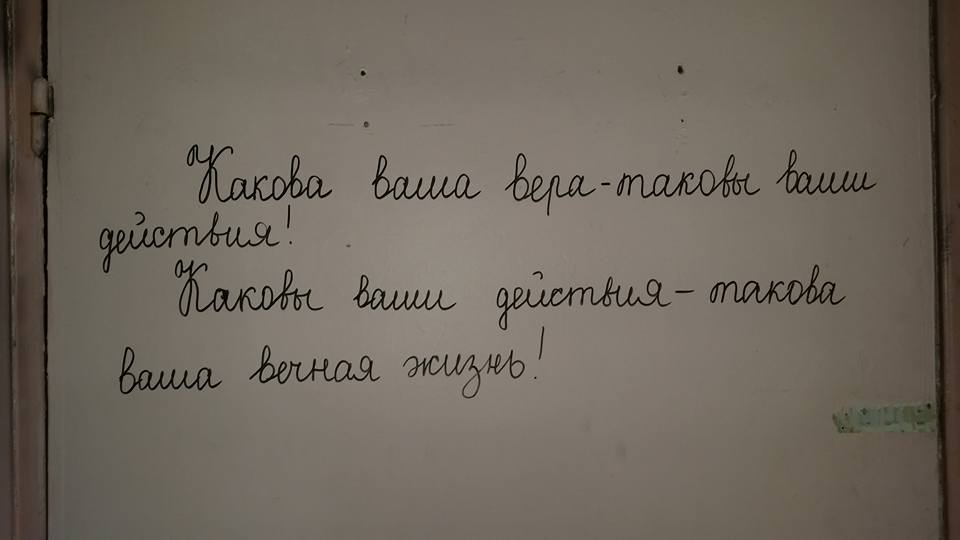 Какова ваша вера-таковы ваши
действия!
Каковы ваши действия-такова
ваша вечная жизнь!